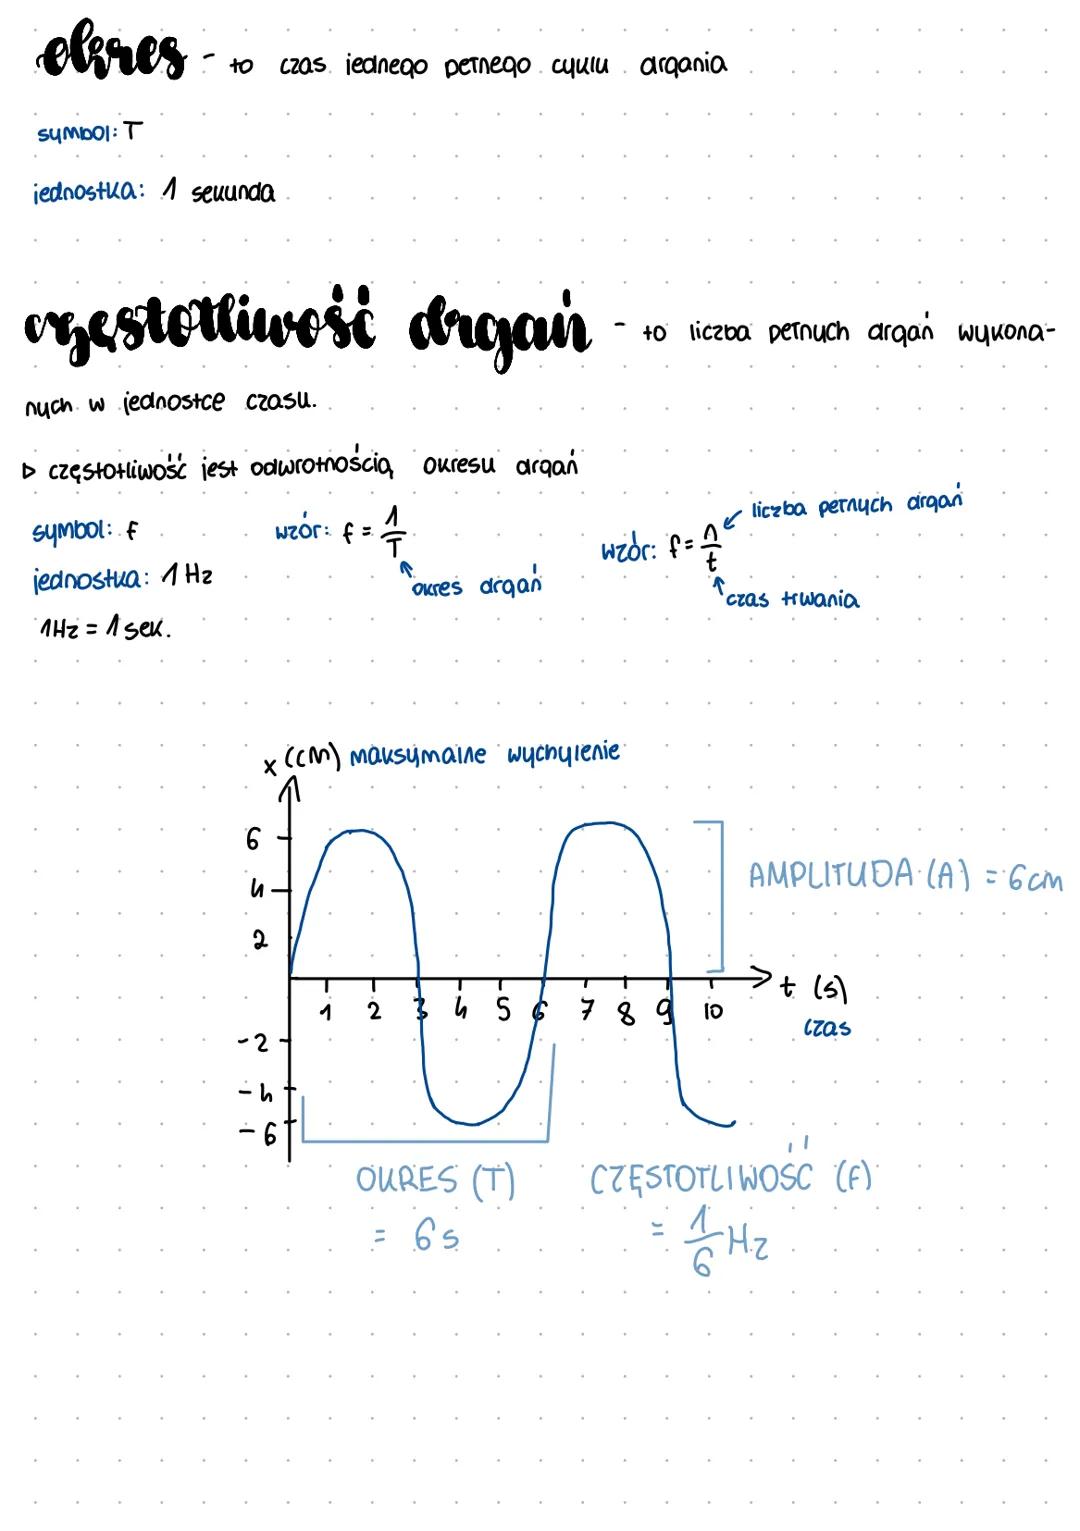 okres - to czas jednego pełnego cyklu drgania
symbol: T
jednostka: 1 sekunda
częstotliwość drgań - to liczba pełnych drgań wykona-
nych w jednostce czasu.
▷ częstotliwość jest odwrotnością okresu drgań
symbol: f
wzór: f = 1/T
okres drgań
wzór: f = n/t
liczba pełnych drgań
czas trwania
jednostka: 1 Hz
1Hz = 1 sek.
x (cm) maksymalne wychylenie
6
4
2
AMPLITUDA (A) = 6cm
1 2 3 4 5 6 7 8 9 10
t (s)
czas
-2
-4
-6
OKRES (T)
= 6s
CZĘSTOTLIWOŚĆ (F)
= 1/6 Hz